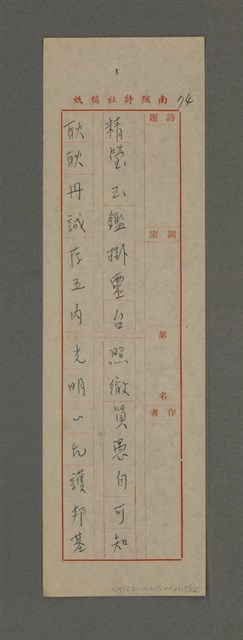 南陔詩社稿紙
74
詩題
詞宗
第 名
作者
精瑩玉鑑掛靈台 照徹賢愚自可知
耿耿丹誠存五內 光明心瓦護邦基